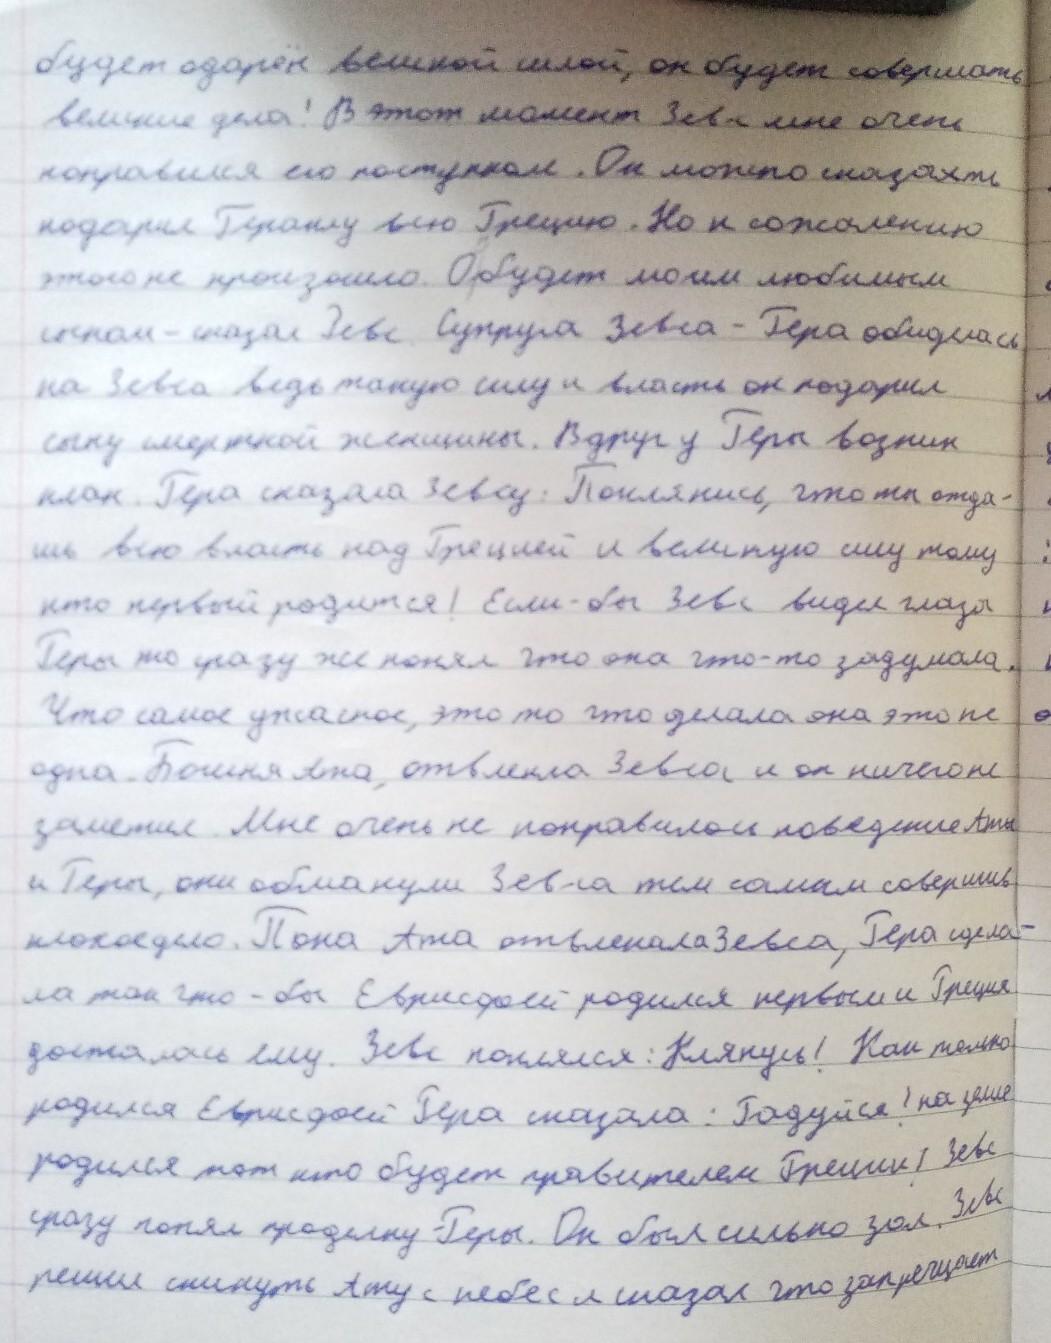 будет одарён великой силой, он будет совершать
великие дела! В этот момент Зевс мне очень
понравился его поступком. Он можно сказать
подарил Гераклу всю Грецию. Но к сожалению
этого не произошло. Он будет моим любимым
сыном - сказал Зевс. Супруга Зевса - Гера обиделась
на Зевса ведь такую силу и власть он подарил
сыну смертной женщины. Вдруг у Геры возник
план. Гера сказала Зевсу: Поклянись, что ты отда-
шь всю власть над Грецией и великую силу тому
кто первый родится! Если-бы Зевс видел глаза
Геры то сразу же понял что она что-то задумала.
Что самое ужасное, это то что делала она это не
одна. Богиня Ата, отвлекла Зевса и он ничего не
заметил. Мне очень не понравилось поведение Аты
и Геры, они обманули Зевса тем самым совершив
плохое дело. Пока Ата отвлекала Зевса, Гера сдела-
ла так что-бы Еврисфей родился первым и Греция
досталась ему. Зевс поклялся: Клянусь! Как только
родился Еврисфей Гера сказала: Радуйся! на земле
родился тот кто будет правителем Греции! Зевс
сразу понял проделку Геры. Он был сильно зол. Зевс
решил скинуть Ату с небес и сказал что запрещает